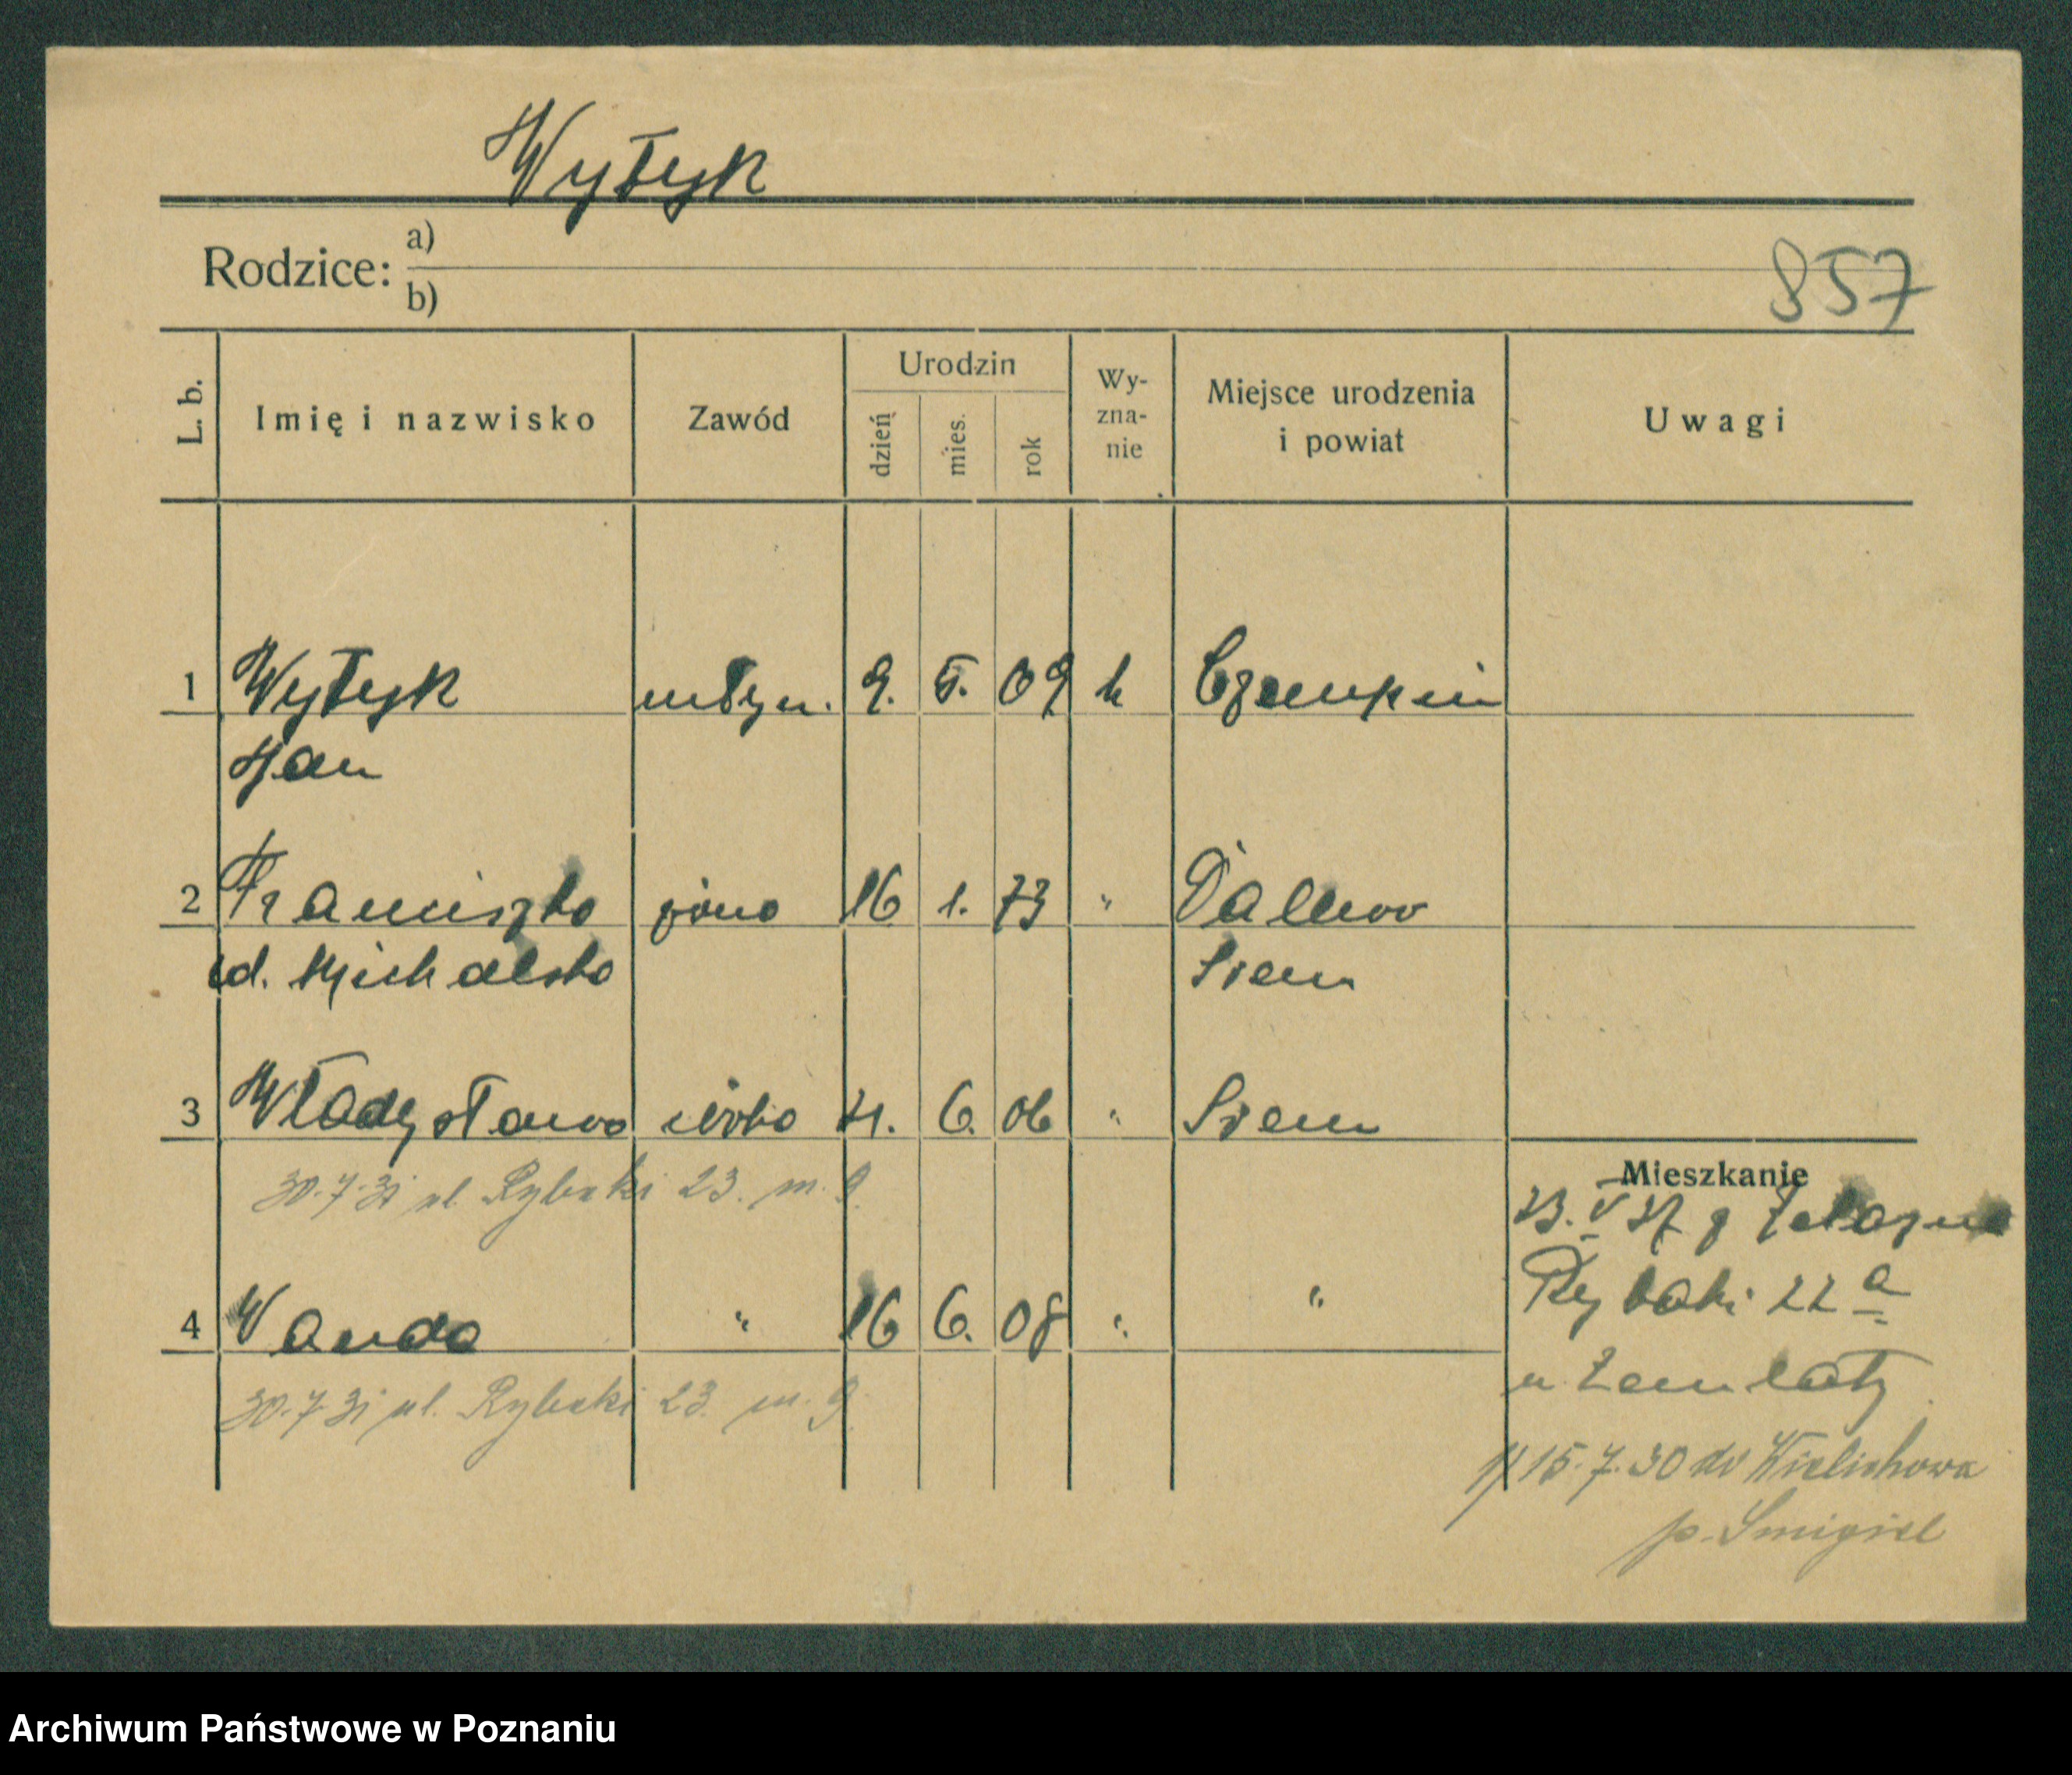 Wytyk
Rodzice: a)
b)
857
L. b. Imię i nazwisko Zawód Urodzin dzień mies. rok Wy-zna-nie Miejsce urodzenia i powiat Uwagi
1 Wytyk młyn. 9. 5. 09 k Czempin
Jan
2 Franciszka żona 16 1. 73 " Dalewo
id. Michalska Srem
3 Władysława córka 21. 6. 06 " Srem
30.7.31 ul. Rybaki 23. m. 9.
Mieszkanie
23. V 27 z Żelazna
4 Wanda " 16 6. 08 " "
Rybaki 22 a
30.7.31 ul. Rybaki 23. m. 9.
u
15.7.30 do Wielichowa
p. Smigiel
Archiwum Państwowe w Poznaniu